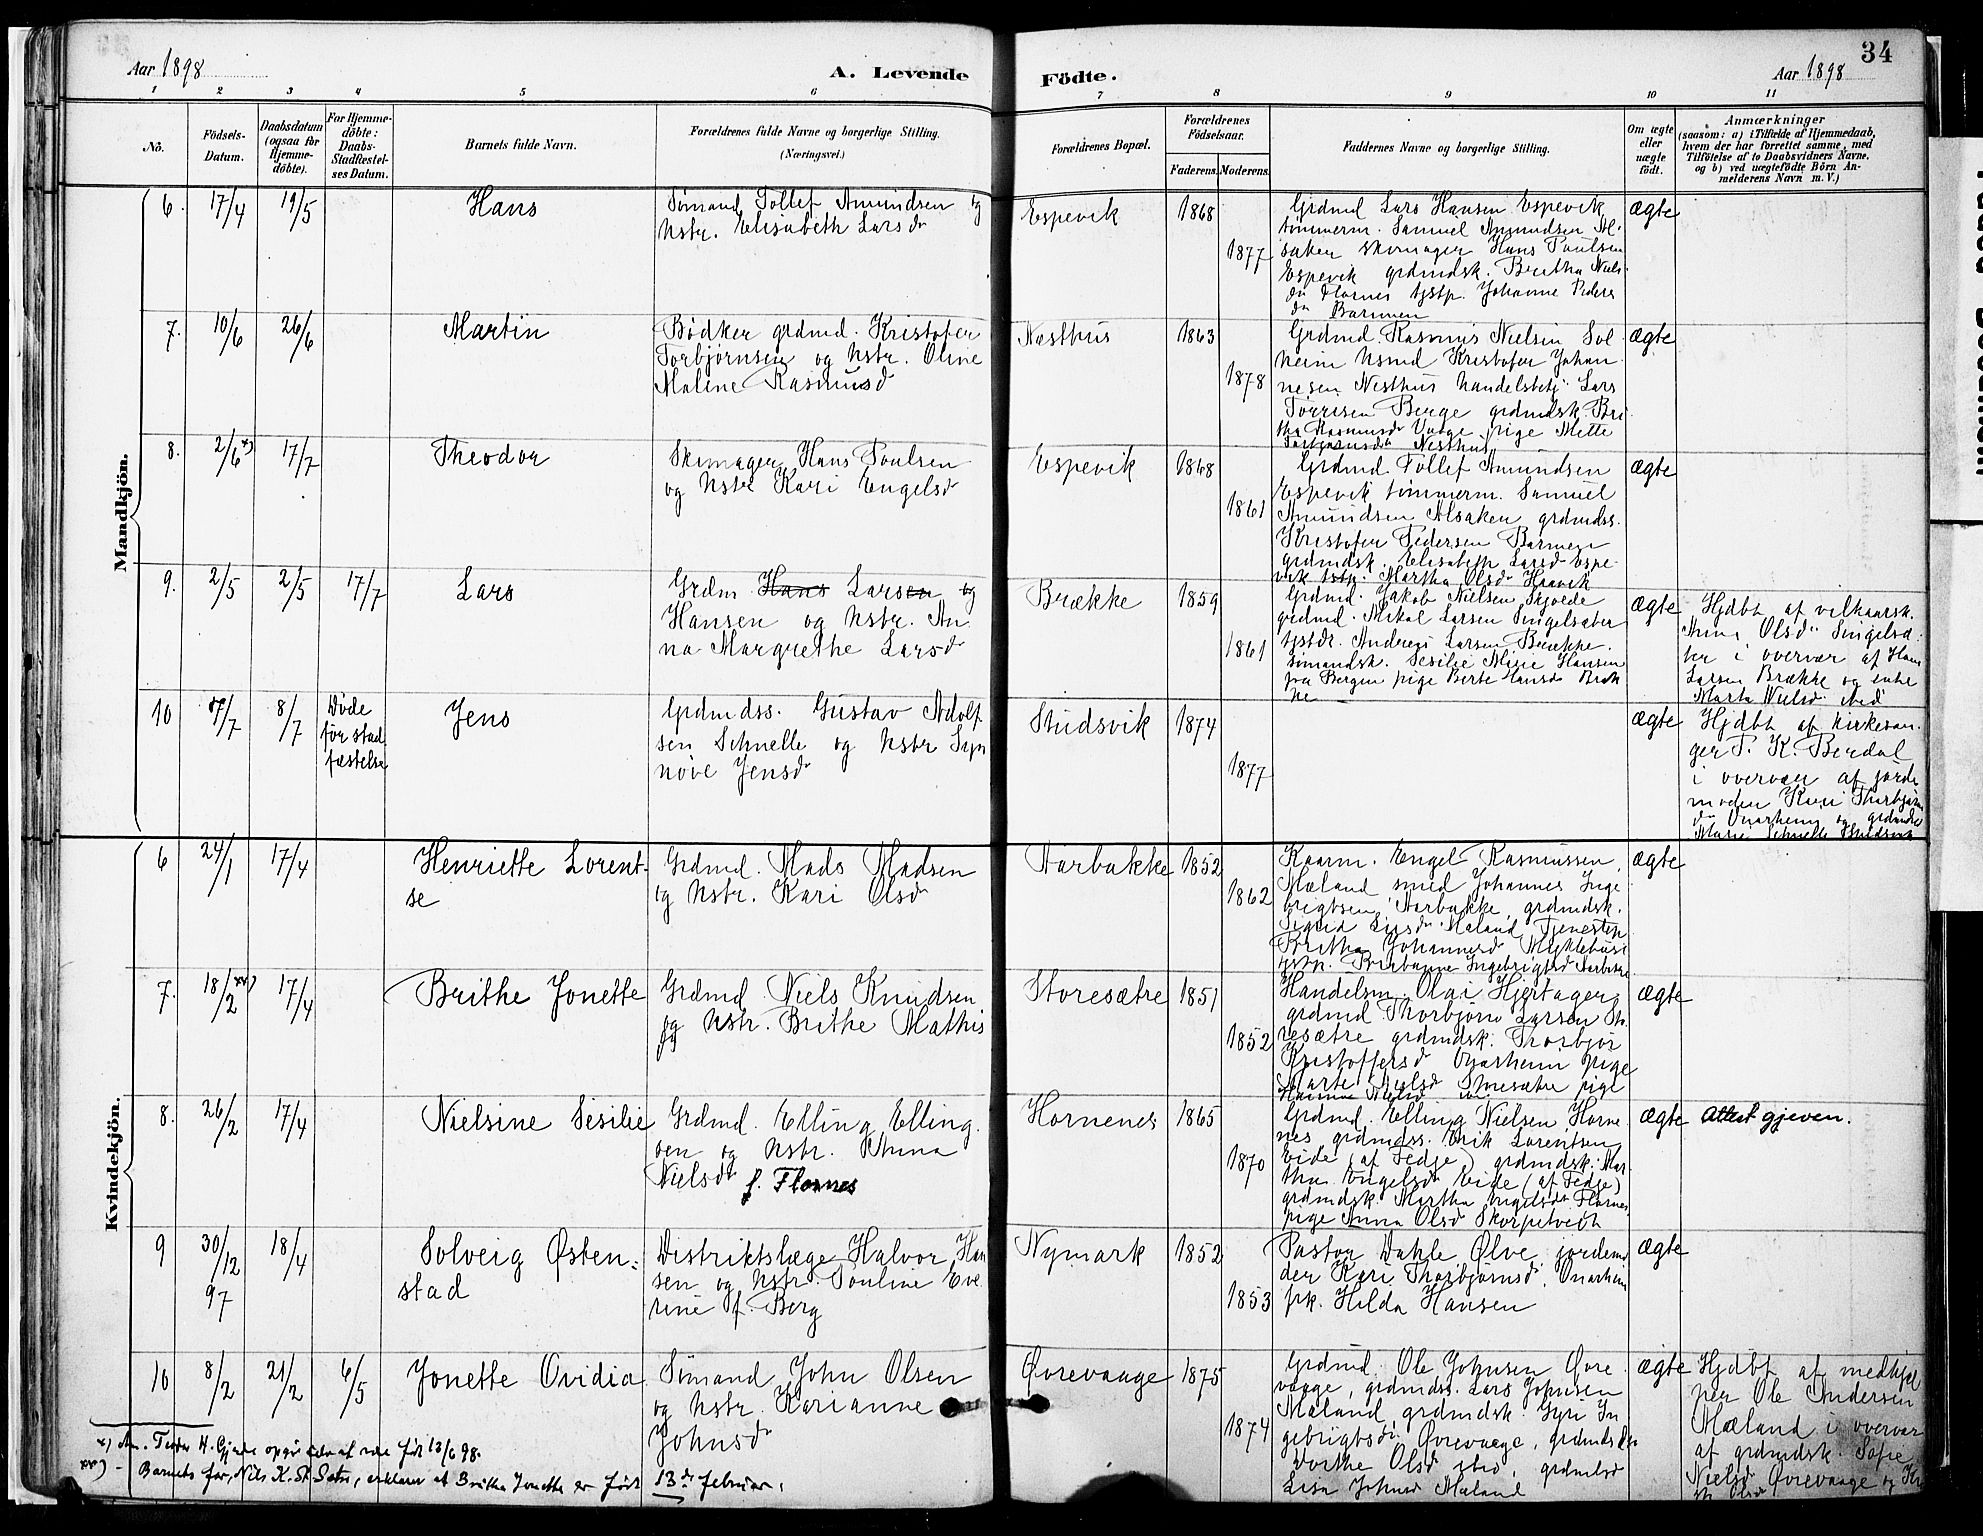 Aar 1898
A. Levende
Födte.
Aar 1898
34
1 2 3 4 5 6 7 8 9 10 11
No.
Födsels-
Datum.
Daabsdatum
(ogsaa for
Hjemme-
döbte).
For Hjemme-
döbte:
Daabs-
Stadfæstel-
ses Datum.
Barnets fulde Navn.
Forældrenes fulde Navne og borgerlige Stilling.
(Næringsvei.)
Forældrenes Bopæl.
Forældrenes
Födselsaar.
Faderens.
Moderens.
Faddernes Navne og borgerlige Stilling.
Om ægte
eller
uægte
födt.
Anmærkninger
(saasom: a) i Tilfælde af Hjemmedaab,
hvem der har forrettet samme, med
Tilföielse af to Daabsvidners Navne.
og b) ved uægtefödte Börn An-
melderens Navn m. V.)
Mandkjön.
6.
17/4
19/5
Hans
Sømand Tollef Amundsen og
hstr. Elisabeth Larsdr
Espevik
1868
1877
Grdmd Lars Hansen Espevik
tømmerm. Samuel Amundsen Al-
saker skomager Hans Poulsen
Espevik grdmdsk. Britha Niels-
dr Flornes tjstp. Johanne Peders
dr Barmen
ægte
7.
10/6
26/6
Martin
Bødker grdmd. Kristofer
Torbjørnsen og hstr. Oline
Maline Rasmusd
Næsthus
1863
1878
Grdmd. Rasmus Nielsen Sol-
heim husmd Kristofer Johan-
nesen Nesthus handelsbetj. Lars
Torrisen Berge grdmdsk. Bri-
tha Rasmusdr Vaage pige Mette
Torbjørnsdr Nesthus
ægte
8.
2/6 x)
17/7
Theodor
Skomager Hans Poulsen
og hstr Kari Engelsdr
Espevik
1868
1861
Grdmd Tollef Amundsen
Espevik tømmerm. Samuel
Amundsen Alsaker grdmdss.
Kristofer Pedersen Barmen
grdmdsk. Elisabeth Larsdr Espe-
vik tstp. Martha Olsdr Haavik
ægte
9.
2/5
2/5
17/7
Lars
Grdm Hans Larsen og
Hansen og hstr. An-
na Margrethe Larsdr
Brække
1859
1861
Grdmd. Jakob Nielsen Skjolde
grdmd. Mikal Larsen Singelsæter
tjstdr. Andreas Larsen Brække.
sømandsk. Sesilie Marie Hansen
fra Bergen pige Berte Hansdr Bræk
ke
ægte
Hjdbt af vilkaarsk.
Anna Olsdr Singelsæ-
ter i overvær af Hans
Larsen Brække og enke
Marta Nielsdr ibid
10
7/7
8/7
Døde
før stad
fæstelse
Jens
Grdmdss. Gustav Adolf
sen Schnelle og hstr Syn
nøve Jensdr
Studsvik
1874
1877
ægte
Hjdbt af kirkesan-
ger T. K. Berdal
i overvær af jorde
moder Kari Thorbjørns
dr Onarheim og grdmdsk
Marie Schnelle Studsvik
Kvindekjön.
6
24/1
17/4
Henriette Lorent-
se
Grdmd. Mads Madsen
og hstr. Kari Olsdr
Aarbakke
1852
1862
Kaarm. Engel Rasmussen
Mæland smed Johannes Inge
brigtsen Aarbakke, grdmdsk.
Sigrid Larsdr Mæland Tjenestep
Britha Johannesdr Myklebust
tjstp. Ingebrigtsd Aarbakke
ægte
7.
18/2 xx)
17/4
Brithe Jonette
Grdmd. Niels Knudsen
og hstr. Brithe Mathis
Storesætre
1851
1852
Handelsm. Olai Hjertager
grdmd Thorbjørn Larsen Sto
resætre grdmdsk. Thorbjør
Kristoffersd Onarheim pige
Marte Nielsdr Storesætre pige
Hanna Nielsd ibid
ægte
8.
26/2
17/4
Nielsine Sesilie
Grdmd. Elling Elling-
sen og hstr. Anna
Nielsdr f. Flornes
Hornenes
1865
1870
Grdmd. Elling Nielsen Horne
nes grdmdss. Erik Lorentsen
Eide (af Fedje) grdmdsk. Mar-
tha Engelsdr Eide (af Fedje)
grdmdsk. Martha Engelsdr Flornes
pige Anna Olsd Skorpetvedt
ægte
Attest gjeven.
9
30/12
97
18/4
Solveig Østen-
stad
Distriktslæge Halvor Han
sen og hstr. Pouline Eve
rine f. Berg
Nymark
1852
1853
Pastor Dahle Ølve, jordemo
der Kari Thorbjørnsd. Onarheim
frk. Hilda Hansen
ægte
10
8/2
21/2
6/5
Jonette Ovidia
Sømand John Olsen
og hstr. Karianne
Johnsdr
Øvrevaage
1875
1874
Grdmd. Ole Johnsen Øvre-
vaage, grdmdss. Lars Johnsen
Mæland, grdmdsk. Gyri In
gebrigtsdr Øvrevaage, grdmdsdr
Dorthe Olsd ibid, grdmdsd
Lisa Johnsd Mæland
ægte
Hjdbt af medhjæl
per Ole Andersen
Mæland i overvær
af grdmdsk. Sofie
Nielsdr Øvrevaage og
x) H. opgir selv at være født 13/6 98.
xx) - Barnets far, Nils K. St. Sætre, erklærer at Britha Jonette er født 13de februar.